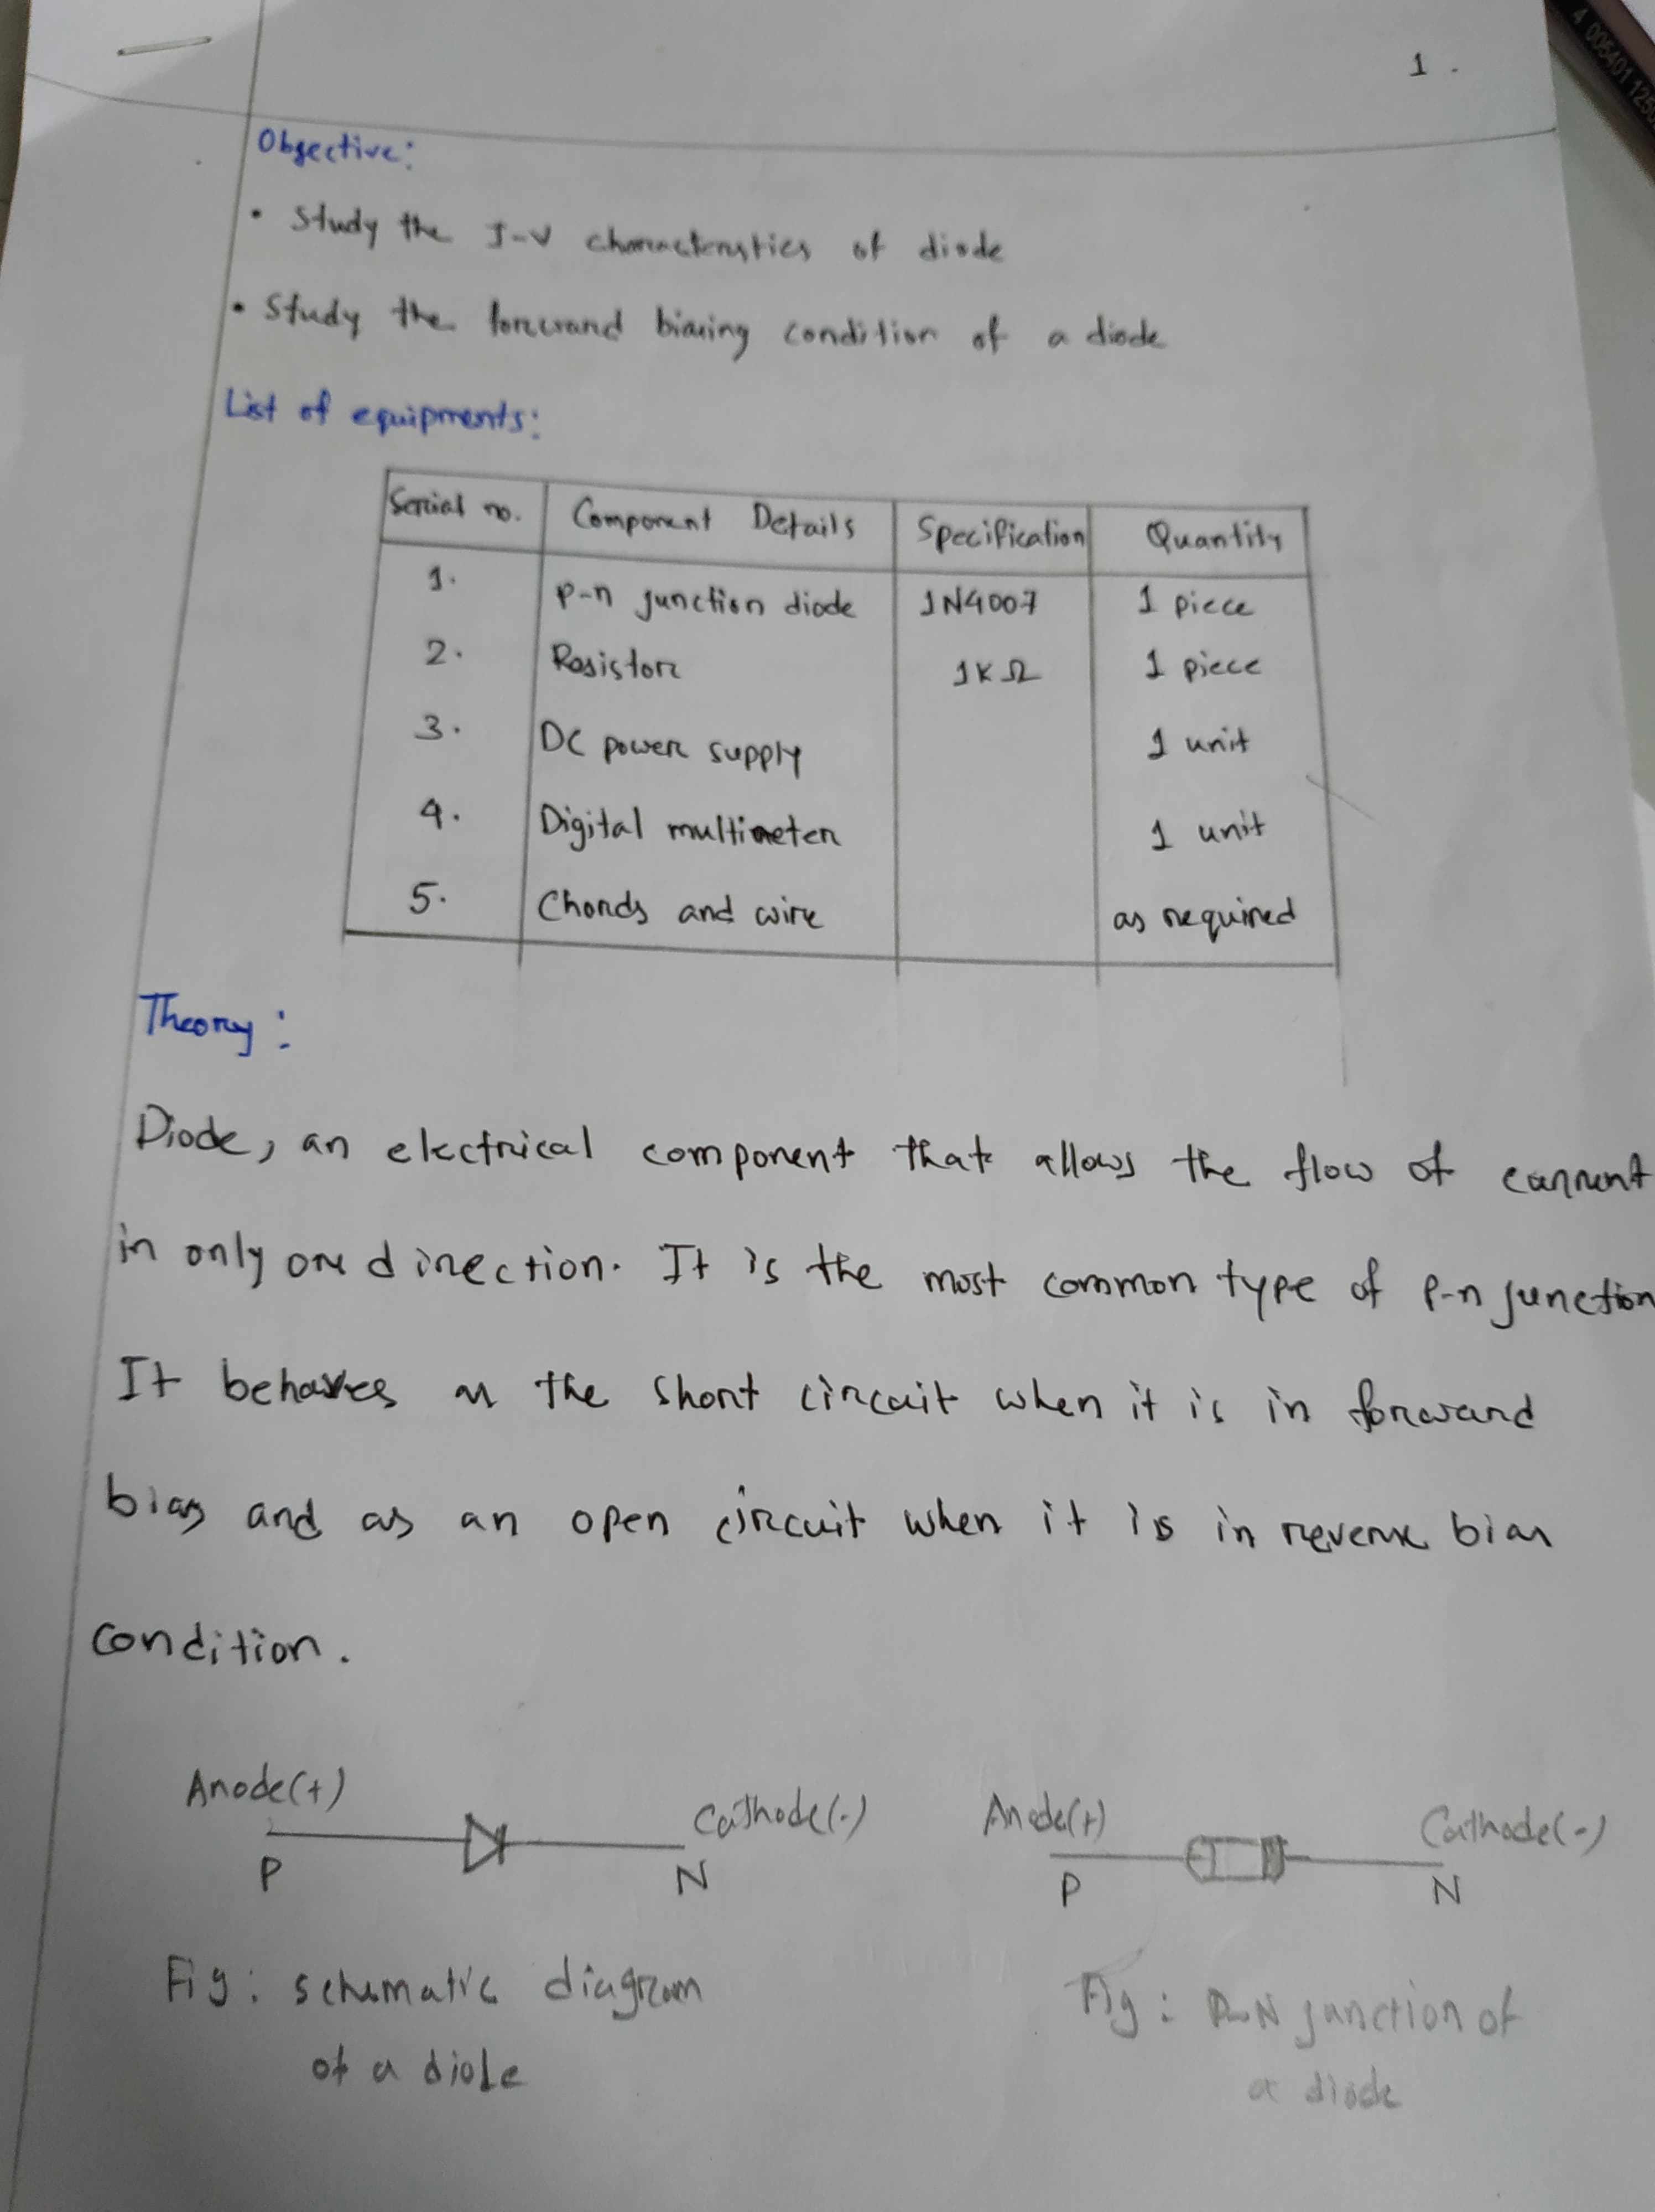 4 005401 125
1.
Objective:
• Study the I-V characteristics of diode
• Study the forward biasing condition of a diode
List of equipments:
Serial no. Component Details Specification Quantity
1. P-n junction diode 1N4007 1 piece
2. Resistor 1KΩ 1 piece
3. DC power supply 1 unit
4. Digital multimeter 1 unit
5. Chords and wire as required
Theory:
Diode, an electrical component that allows the flow of current
in only one direction. It is the most common type of p-n junction
It behaves as the short circuit when it is in forward
bias and as an open circuit when it is in reverse bias
condition.
Anode(+) Cathode(-) Anode(+) Cathode(-)
P N P N
Fig: schematic diagram
of a diode
Fig: P-N junction of
a diode